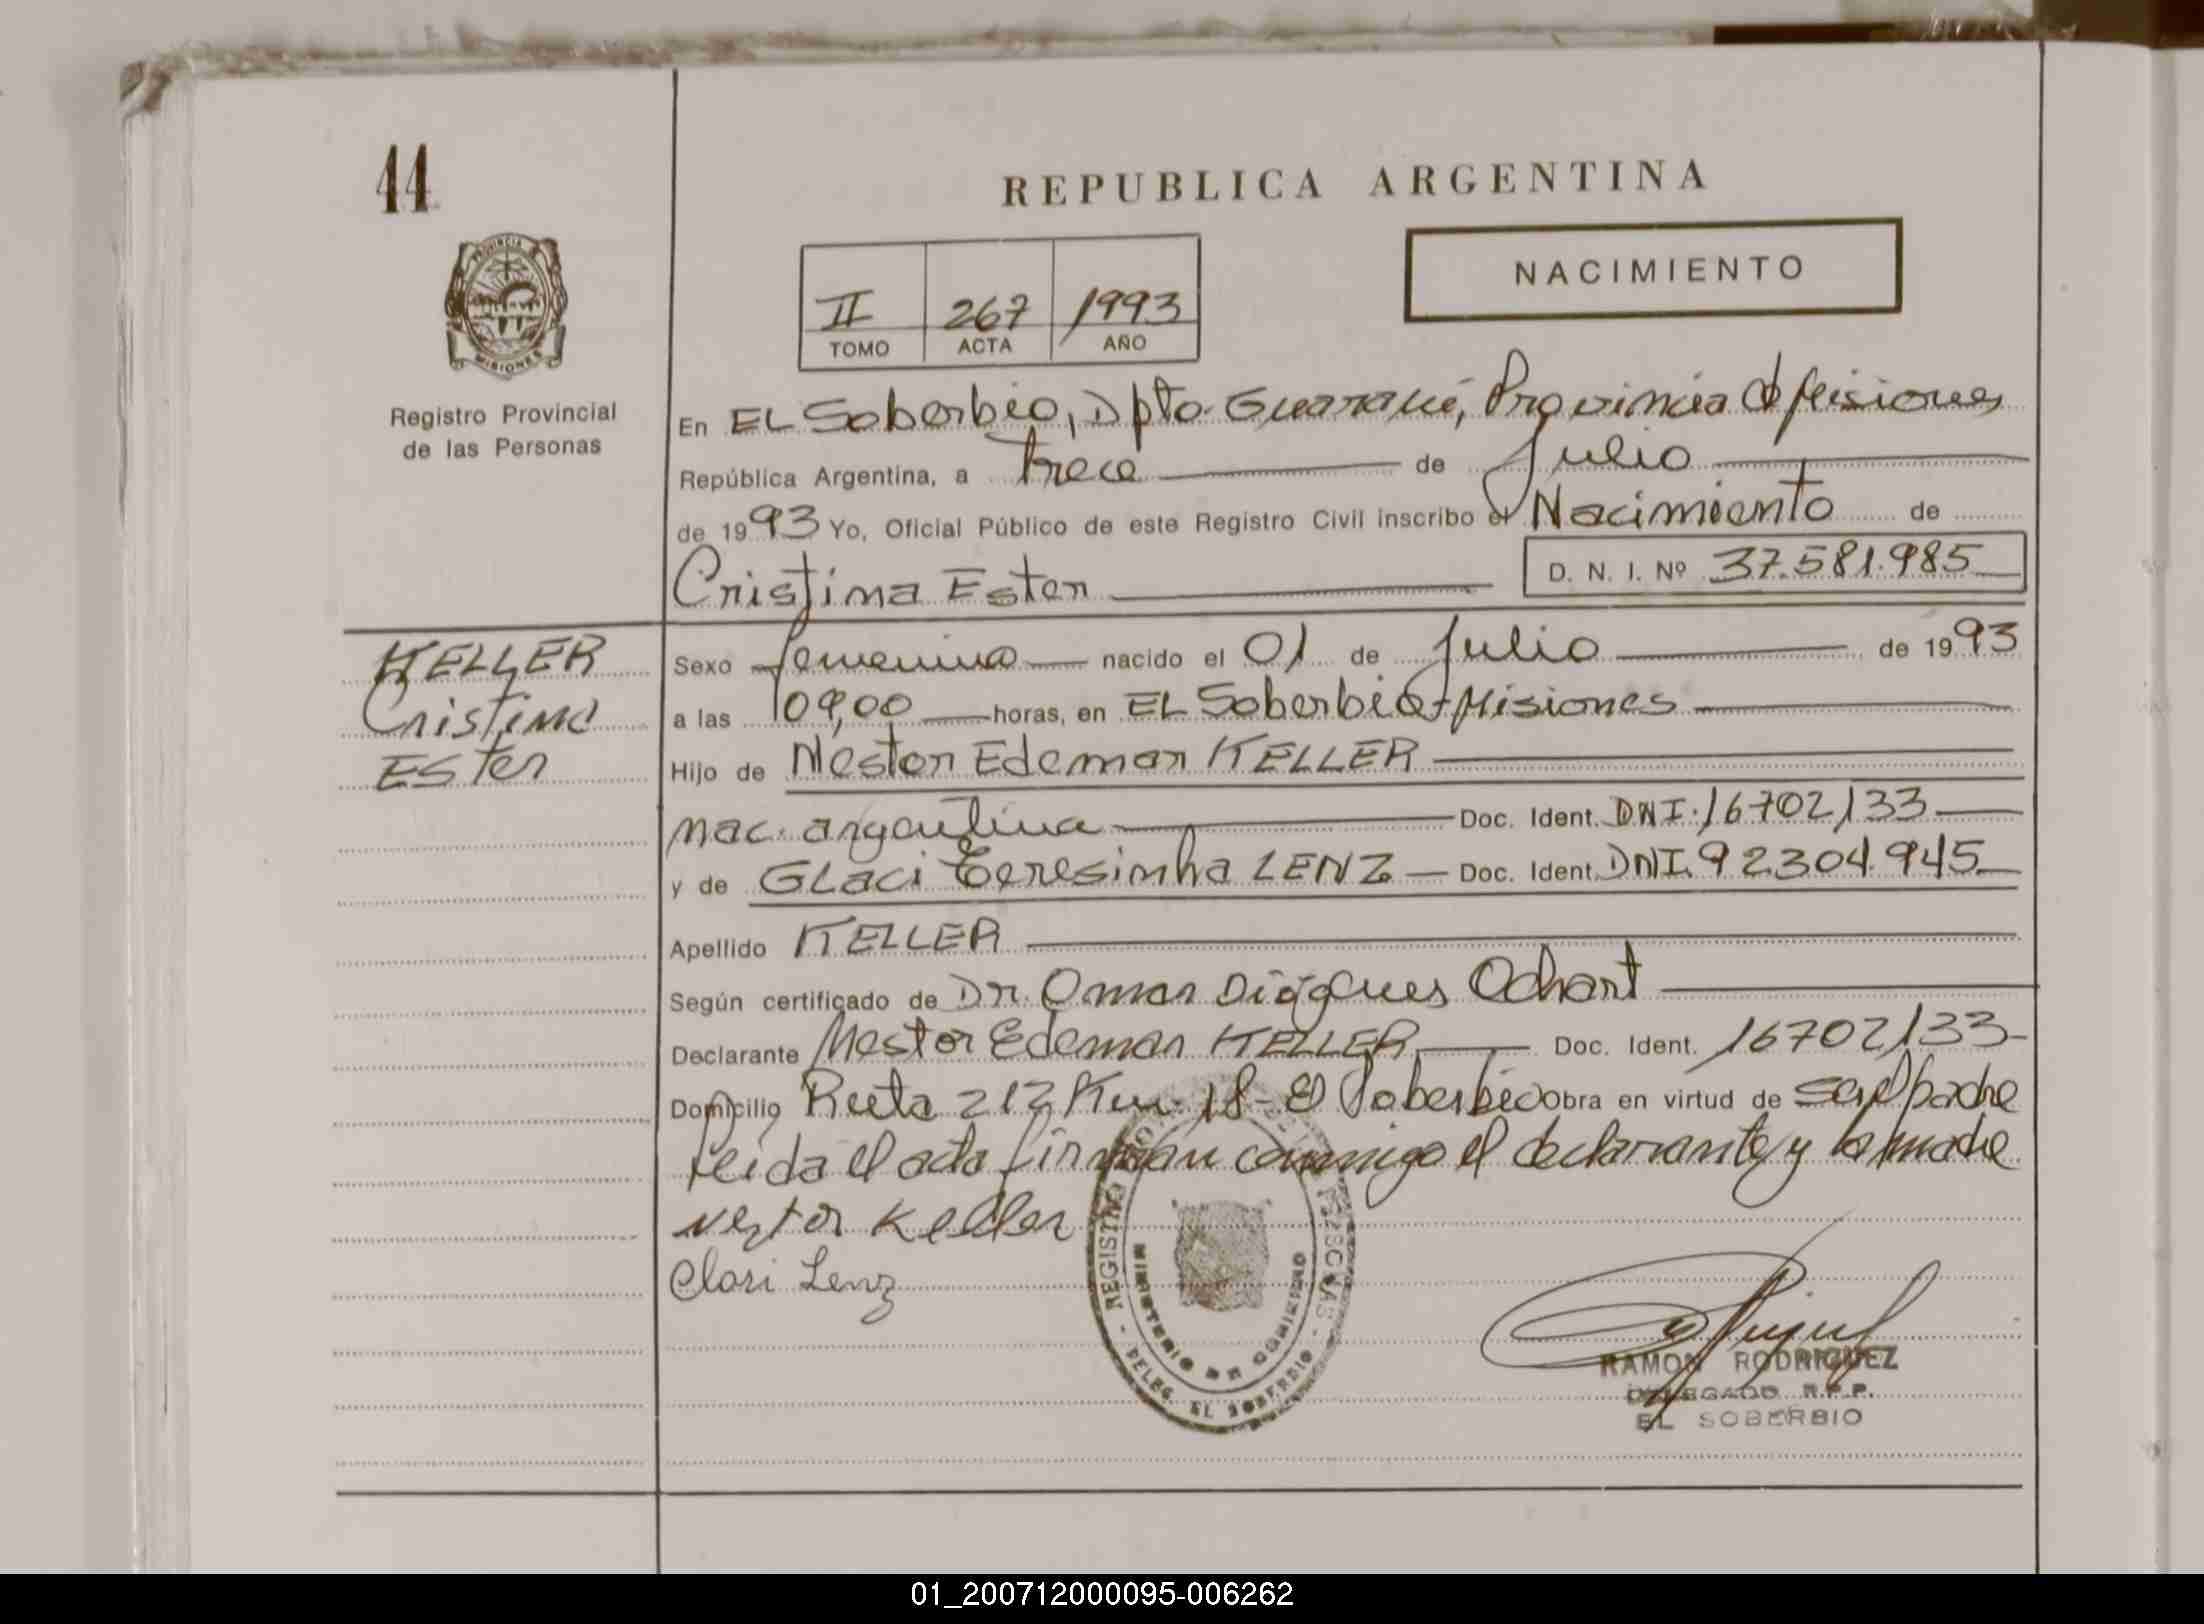 44
REPUBLICA ARGENTINA
PROVINCIA DE
MISIONES
Registro Provincial
de las Personas
II 267 1993
TOMO ACTA AÑO
NACIMIENTO
En EL Soberbio, Dpto. Guaraní, Provincia de Misiones
República Argentina, a Trece de Julio
de 1993 Yo, Oficial Público de este Registro Civil inscribo el Nacimiento de
Cristina Ester D. N. I. Nº 37.581.985
KELLER
Cristina
Ester
Sexo femenino nacido el 01 de Julio de 1993
a las 09,00 horas, en EL Soberbio - Misiones
Hijo de Nestor Edemar KELLER
nac. argentina Doc. Ident. DNI. 16702133
y de GLaci Teresinha LENZ Doc. Ident. DNI. 92304.945
Apellido KELLER
Según certificado de Dr. Omar Diógenes Ochart
Declarante Nestor Edemar KELLER Doc. Ident. 16702133
Domicilio Ruta 212 Km. 18 - El Soberbio obra en virtud de ser el padre
leida el acta firman conmigo el declarante y la madre
Nestor Keller
Clari Lenz
REGISTRO PERSONAS - DELEG. EL SOBERBIO
MINISTERIO DE GOBIERNO
RAMON RODRIGUEZ
DELEGADO R.P.P.
EL SOBERBIO
01_200712000095-006262